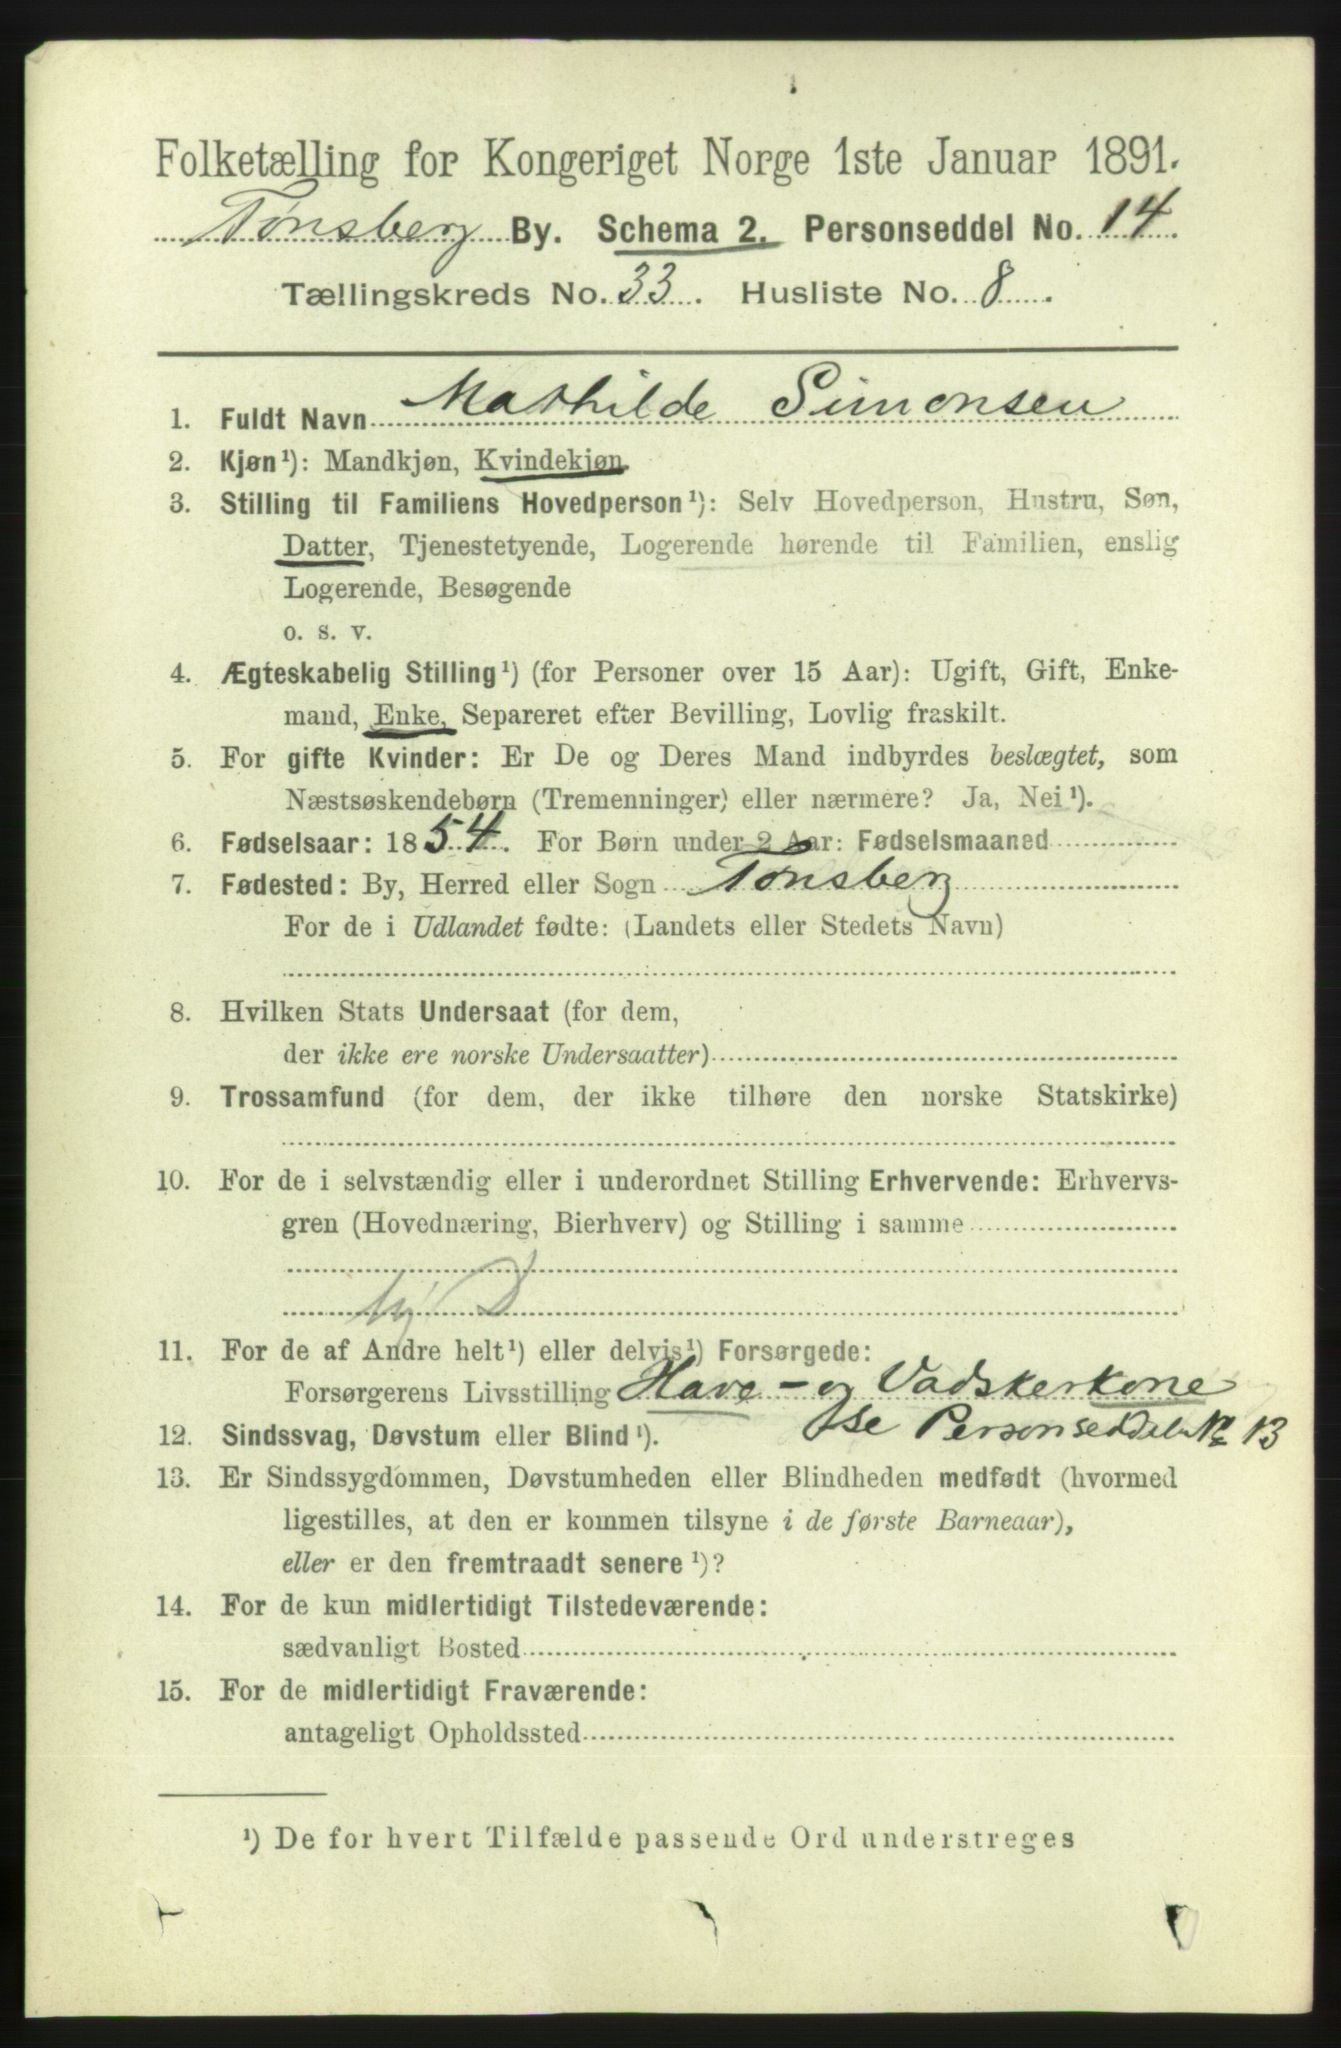 Folketælling for Kongeriget Norge 1ste Januar 1891.
Tønsberg By. Schema 2. Personseddel No. 14.
Tællingskreds No. 33. Husliste No. 8.
1. Fuldt Navn Mathilde Simonsen
2. Kjøn¹): Mandkjøn, Kvindekjøn
3. Stilling til Familiens Hovedperson¹): Selv Hovedperson, Hustru, Søn,
Datter, Tjenestetyende, Logerende hørende til Familien, enslig
Logerende, Besøgende
o. s. v.
4. Ægteskabelig Stilling¹) (for Personer over 15 Aar): Ugift, Gift, Enke-
mand, Enke, Separeret efter Bevilling, Lovlig fraskilt.
5. For gifte Kvinder: Er De og Deres Mand indbyrdes beslægtet, som
Næstsøskendebørn (Tremenninger) eller nærmere? Ja, Nei¹).
6. Fødselsaar: 1854. For Børn under 2 Aar: Fødselsmaaned
7. Fødested: By, Herred eller Sogn Tønsberg
For de i Udlandet fødte: (Landets eller Stedets Navn)
8. Hvilken Stats Undersaat (for dem,
der ikke ere norske Undersaatter)
9. Trossamfund (for dem, der ikke tilhøre den norske Statskirke)
10. For de i selvstændig eller i underordnet Stilling Erhvervende: Erhvervs-
gren (Hovednæring, Bierhverv) og Stilling i samme
11. For de af Andre helt¹) eller delvis¹) Forsørgede:
Forsørgerens Livsstilling Have- og Vadskerkone
se Personseddel No 13
12. Sindssvag, Døvstum eller Blind¹).
13. Er Sindssygdommen, Døvstumheden eller Blindheden medfødt (hvormed
ligestilles, at den er kommen tilsyne i de første Barneaar),
eller er den fremtraadt senere¹)?
14. For de kun midlertidigt Tilstedeværende:
sædvanligt Bosted
15. For de midlertidigt Fraværende:
antageligt Opholdssted
¹) De for hvert Tilfælde passende Ord understreges